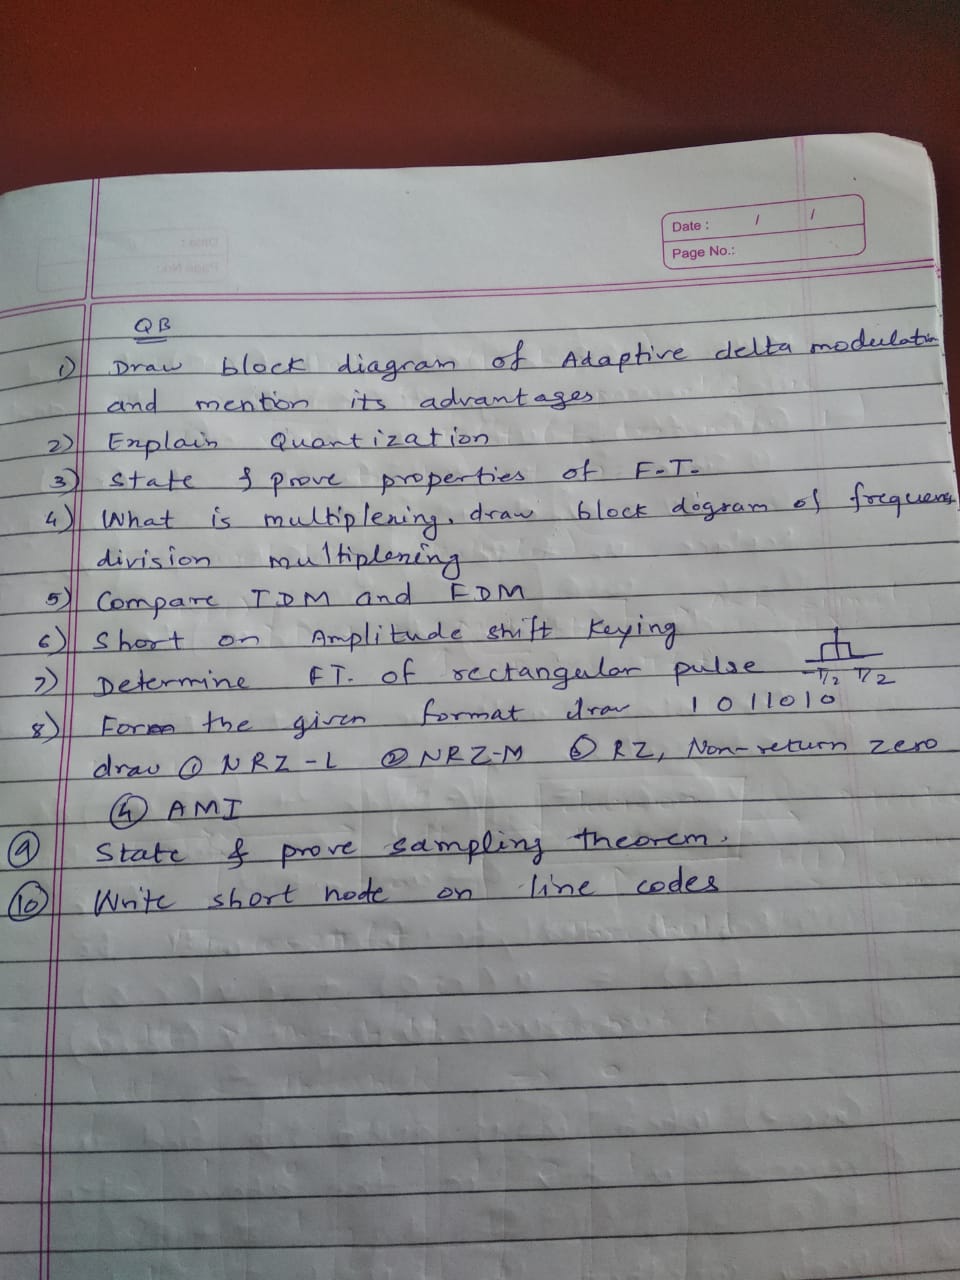 Date : / /
Page No.:
QB
1) Draw block diagram of Adaptive delta modulation
and mention its advantages
2) Explain Quantization
3) State & prove properties of F.T.
4) What is multiplexing. draw block dogram of frequency
division multiplexing
5) Compare TDM and FDM
6) Short on Amplitude shift Keying
7) Determine FT. of rectangular pulse -T/2 T/2
8) Form the given format draw 1011010
draw ① NRZ-L ② NRZ-M ③ RZ, Non-return zero
④ AMI
⑨ State & prove sampling theorem.
⑩ Write short node on line codes